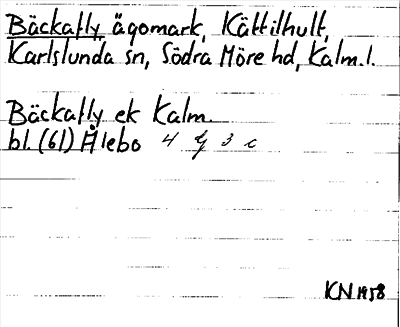 Bäckafly ägomark, Kättilhult,
Karlslunda sn, Södra Möre hd, Kalm.l.
Bäckafly ek Kalm.
bl. (61) Ålebo 4 g 3 c
KN 1958